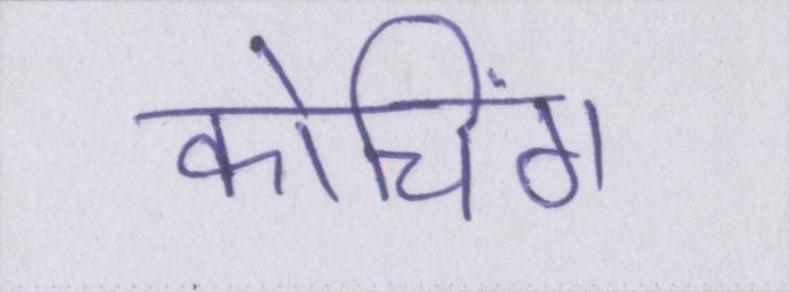 कोचिंग